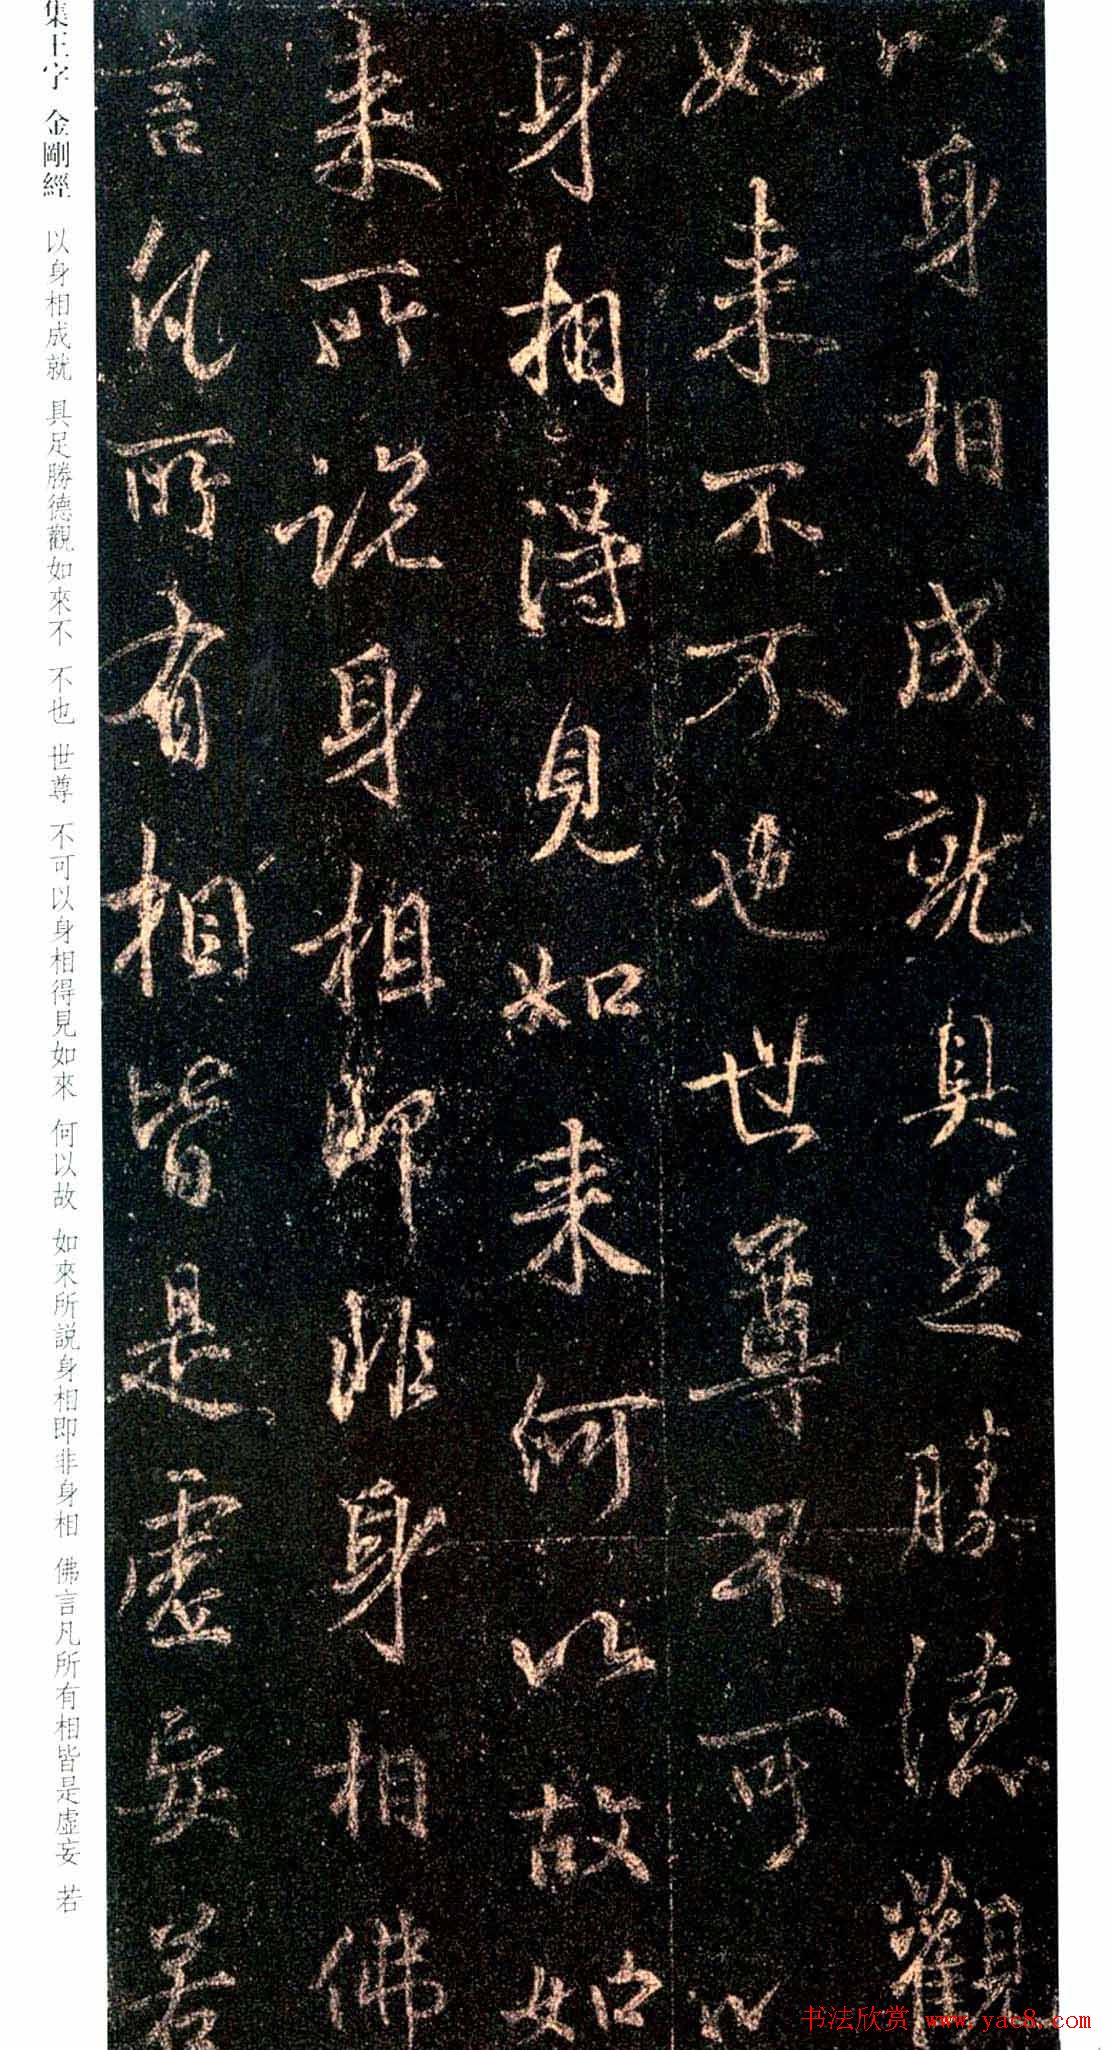 以身相成就具足勝德觀
如来不不也世尊不可以
身相得見如来何以故如
来所説身相即非身相佛
言凡所有相皆是虛妄若
集王字 金剛經 以身相成就 具足勝德觀如來不 不也 世尊 不可以身相得見如來 何以故 如來所説身相即非身相 佛言凡所有相皆是虛妄 若
书法欣赏 www.yac8.com